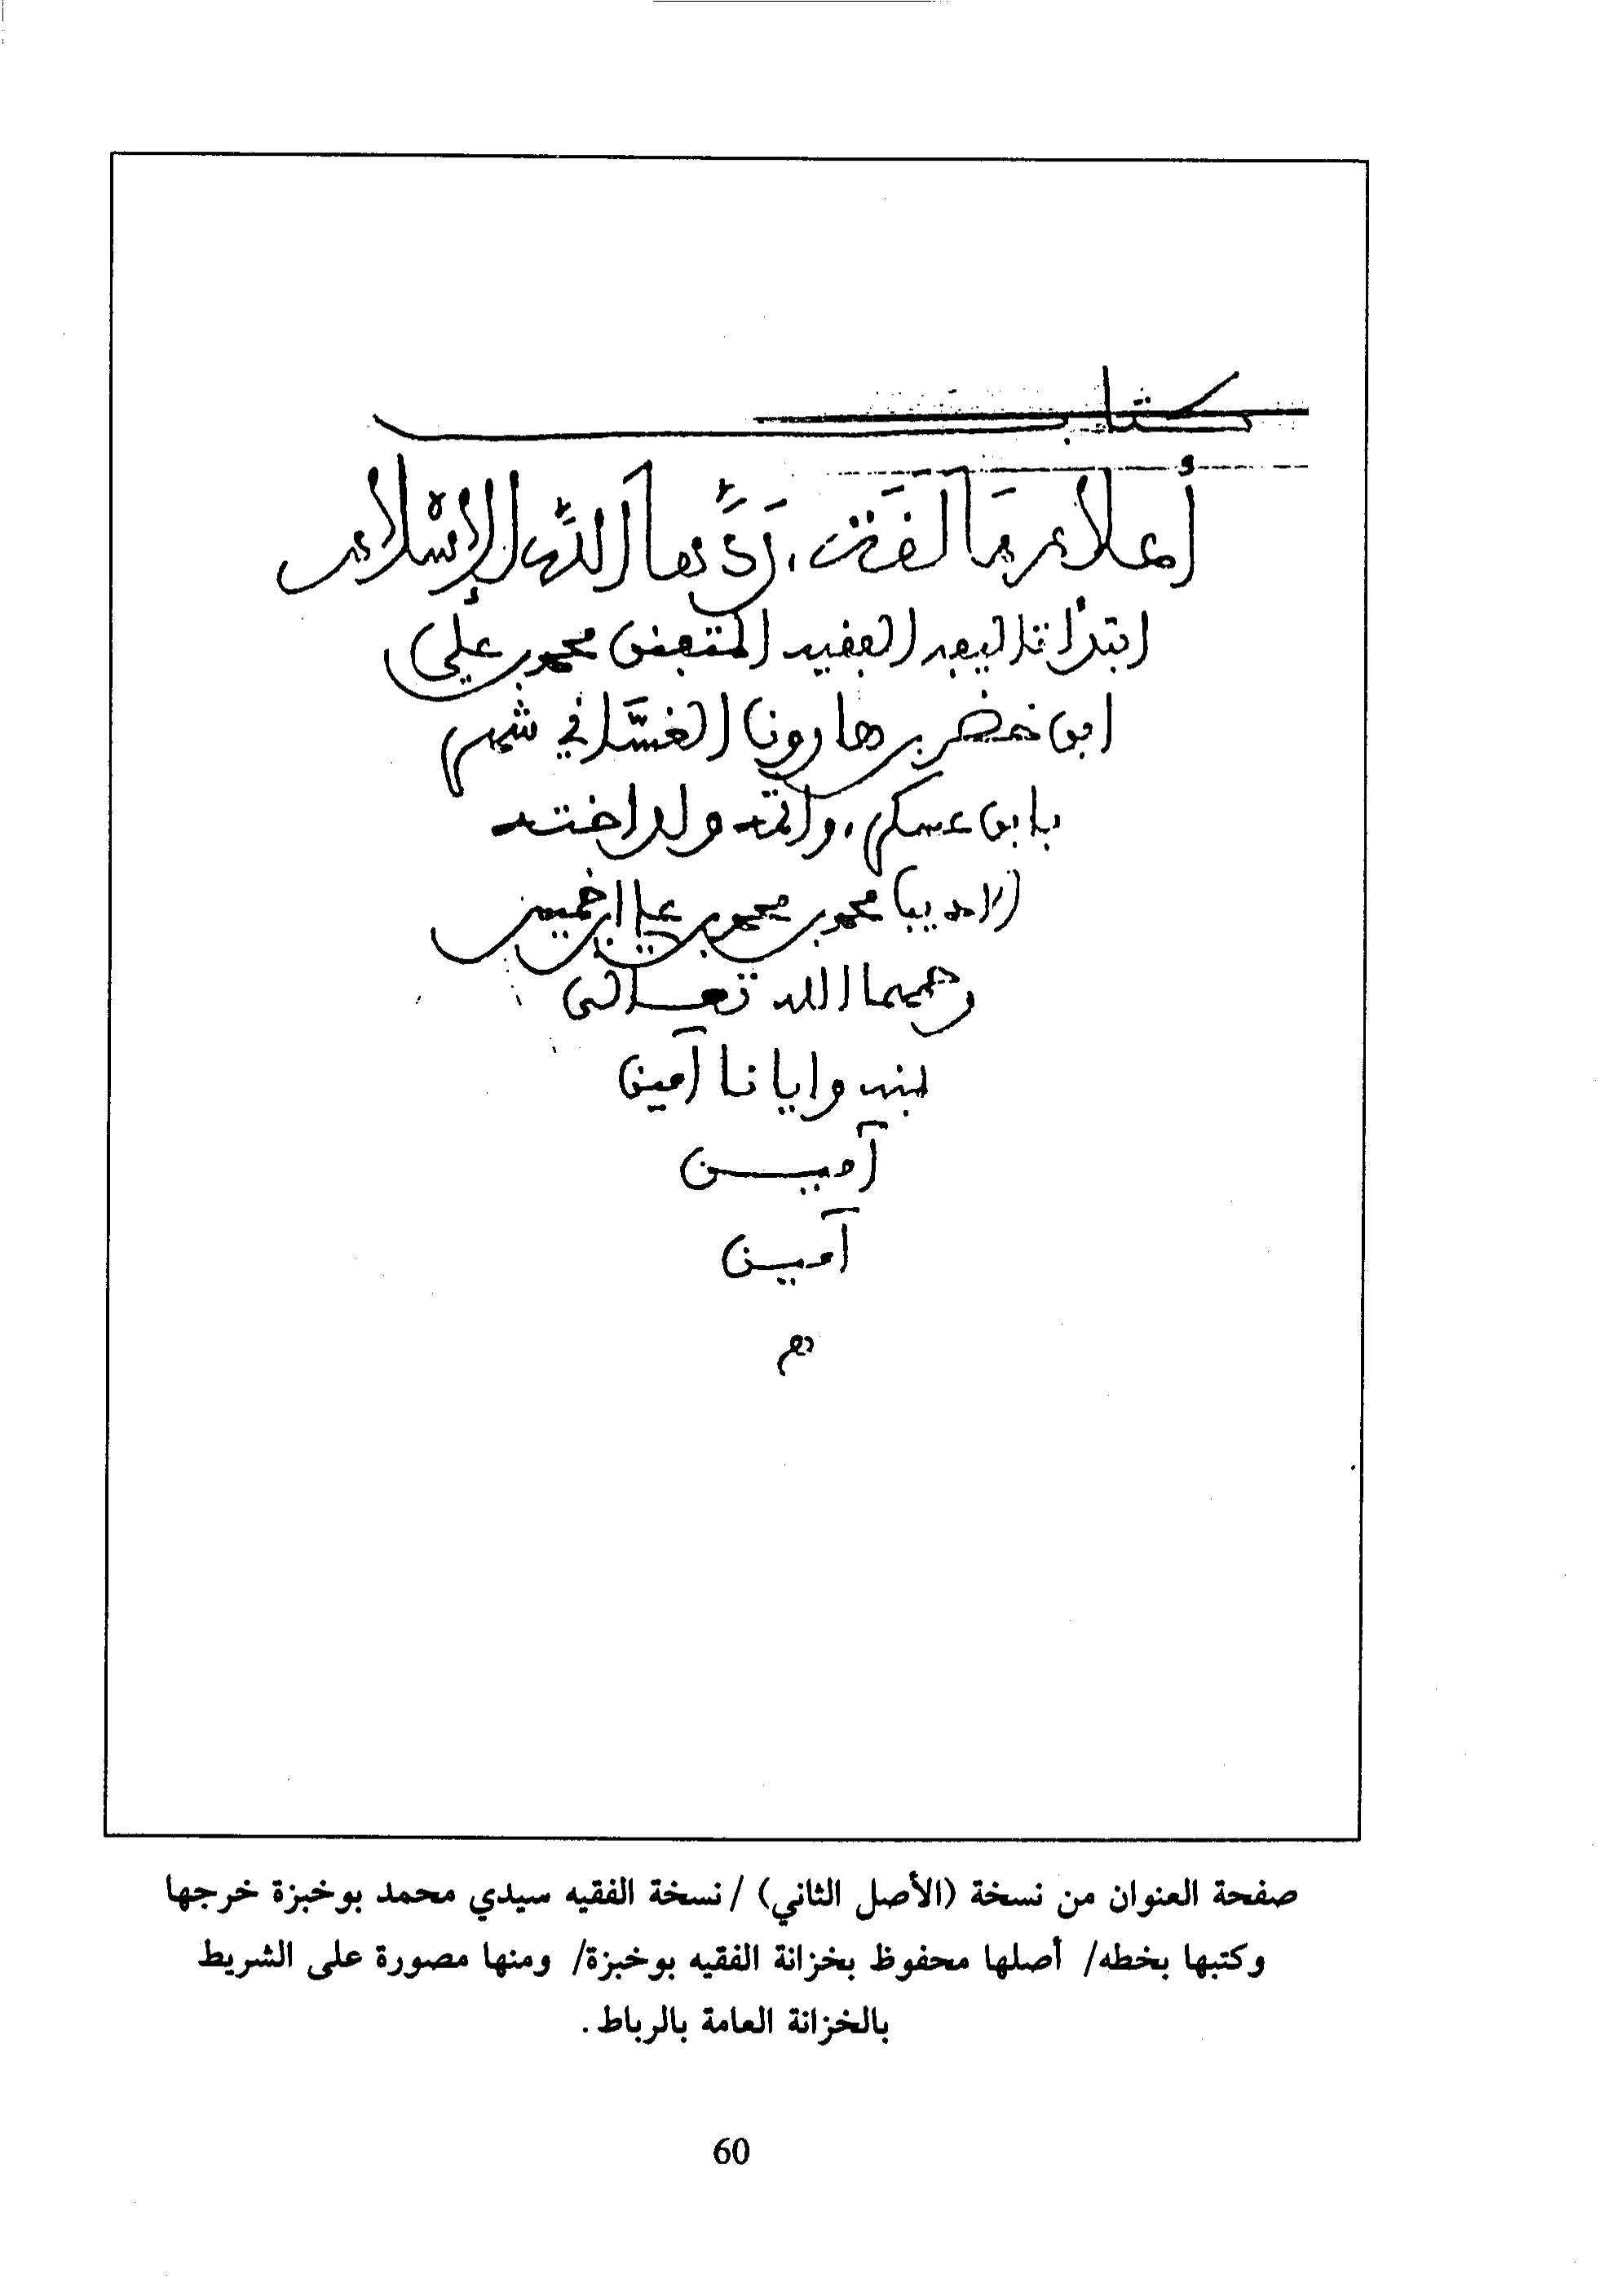 كتاب
أعلام مَالَقَة، رَدَّهَا اللَّهُ لِلإِسْلام
ابتدأ تأليفه الفقيه المتفنن محمد بن علي
ابن خضر بن هارون الغسَّاني شهر
بابن عسكر، وأتمه ولد اخته
الاديب محمد بن محمد بن علي ابن خميس
رحمهما الله تعالى
بمنه وايانا آمين
آميـــن
آميـن
صفحة العنوان من نسخة (الأصل الثاني) / نسخة الفقيه سيدي محمد بوخبزة خرجها
وكتبها بخطه/ أصلها محفوظ بخزانة الفقيه بوخبزة/ ومنها مصورة على الشريط
بالخزانة العامة بالرباط.
60